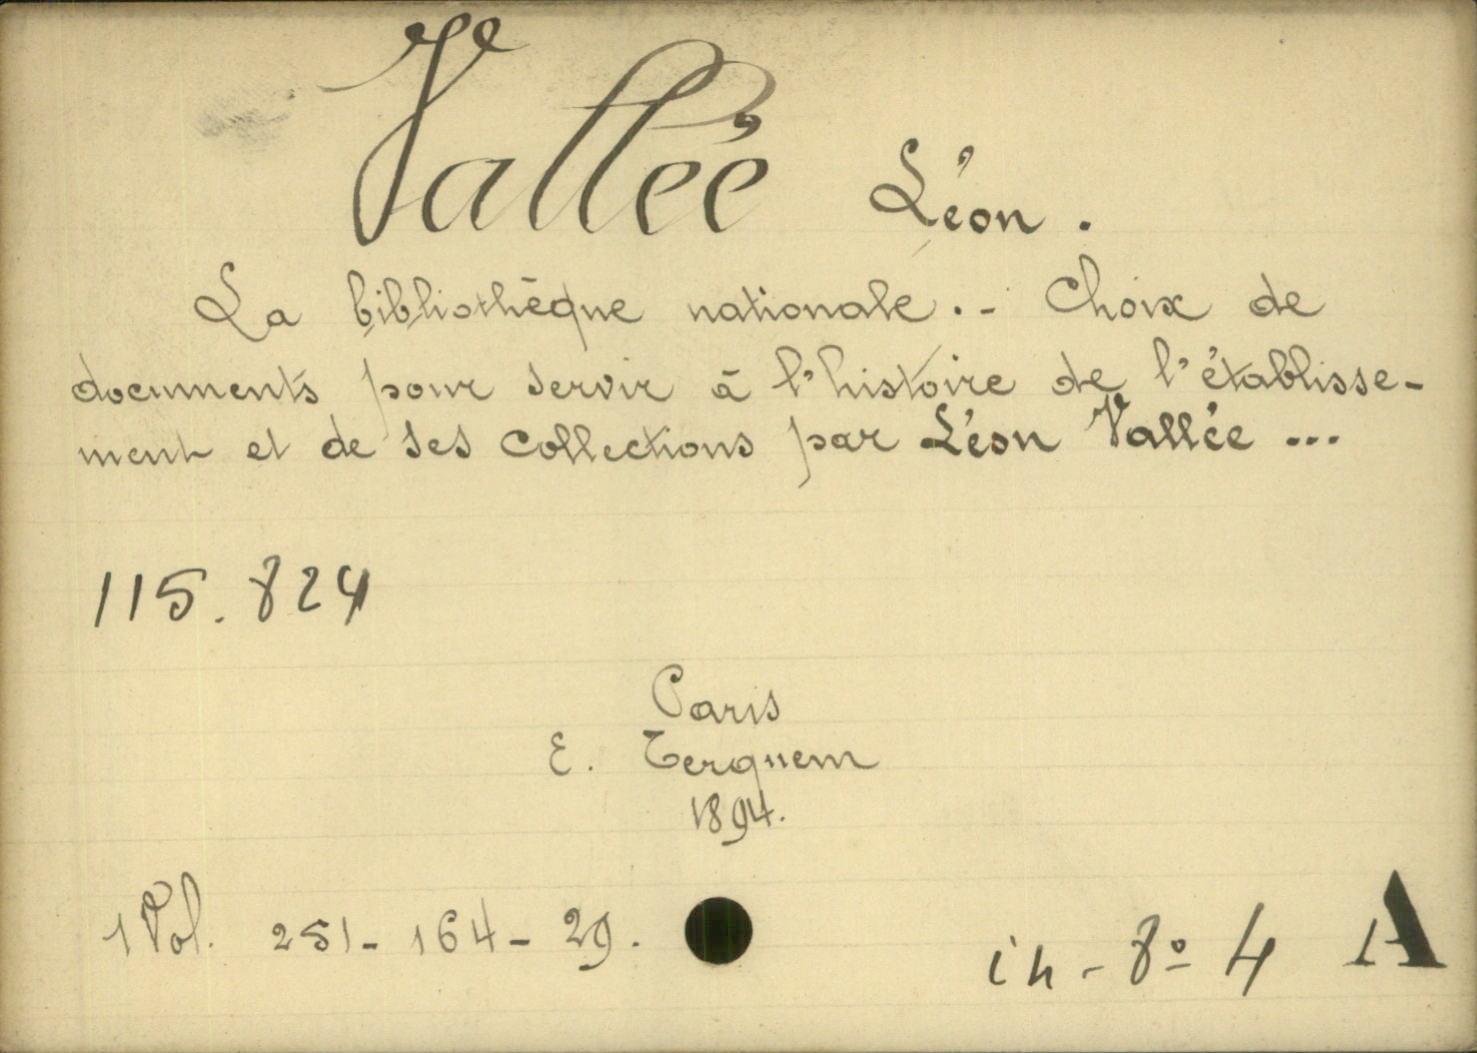 Vallée Léon.
La bibliothèque nationale. - Choix de
documents pour servir à l'histoire de l'établisse-
ment et de ses collections par Léon Vallée ...
115.824
Paris
E. Terquem
1894.
1 Vol. 251 - 164 - 29.
in-8º 4 A